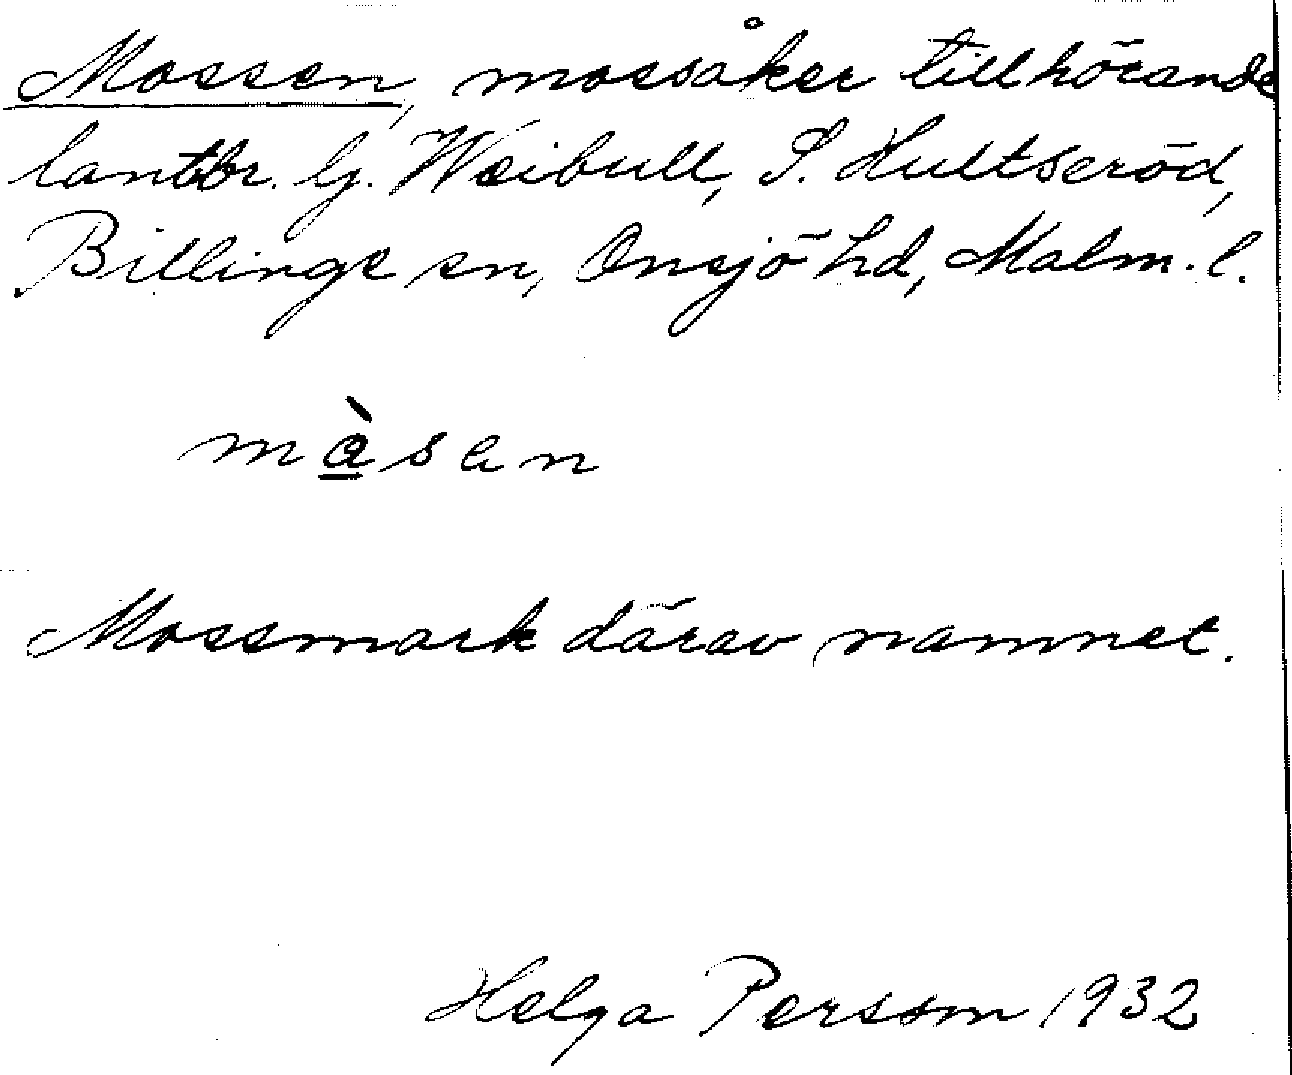 Mossen, mossåker tillhörande
lantbr. G. Weibull, S. Hultseröd,
Billinge sn, Onsjö hd, Malm. l.
màsen
Mossmark därav namnet.
Helga Persson 1932